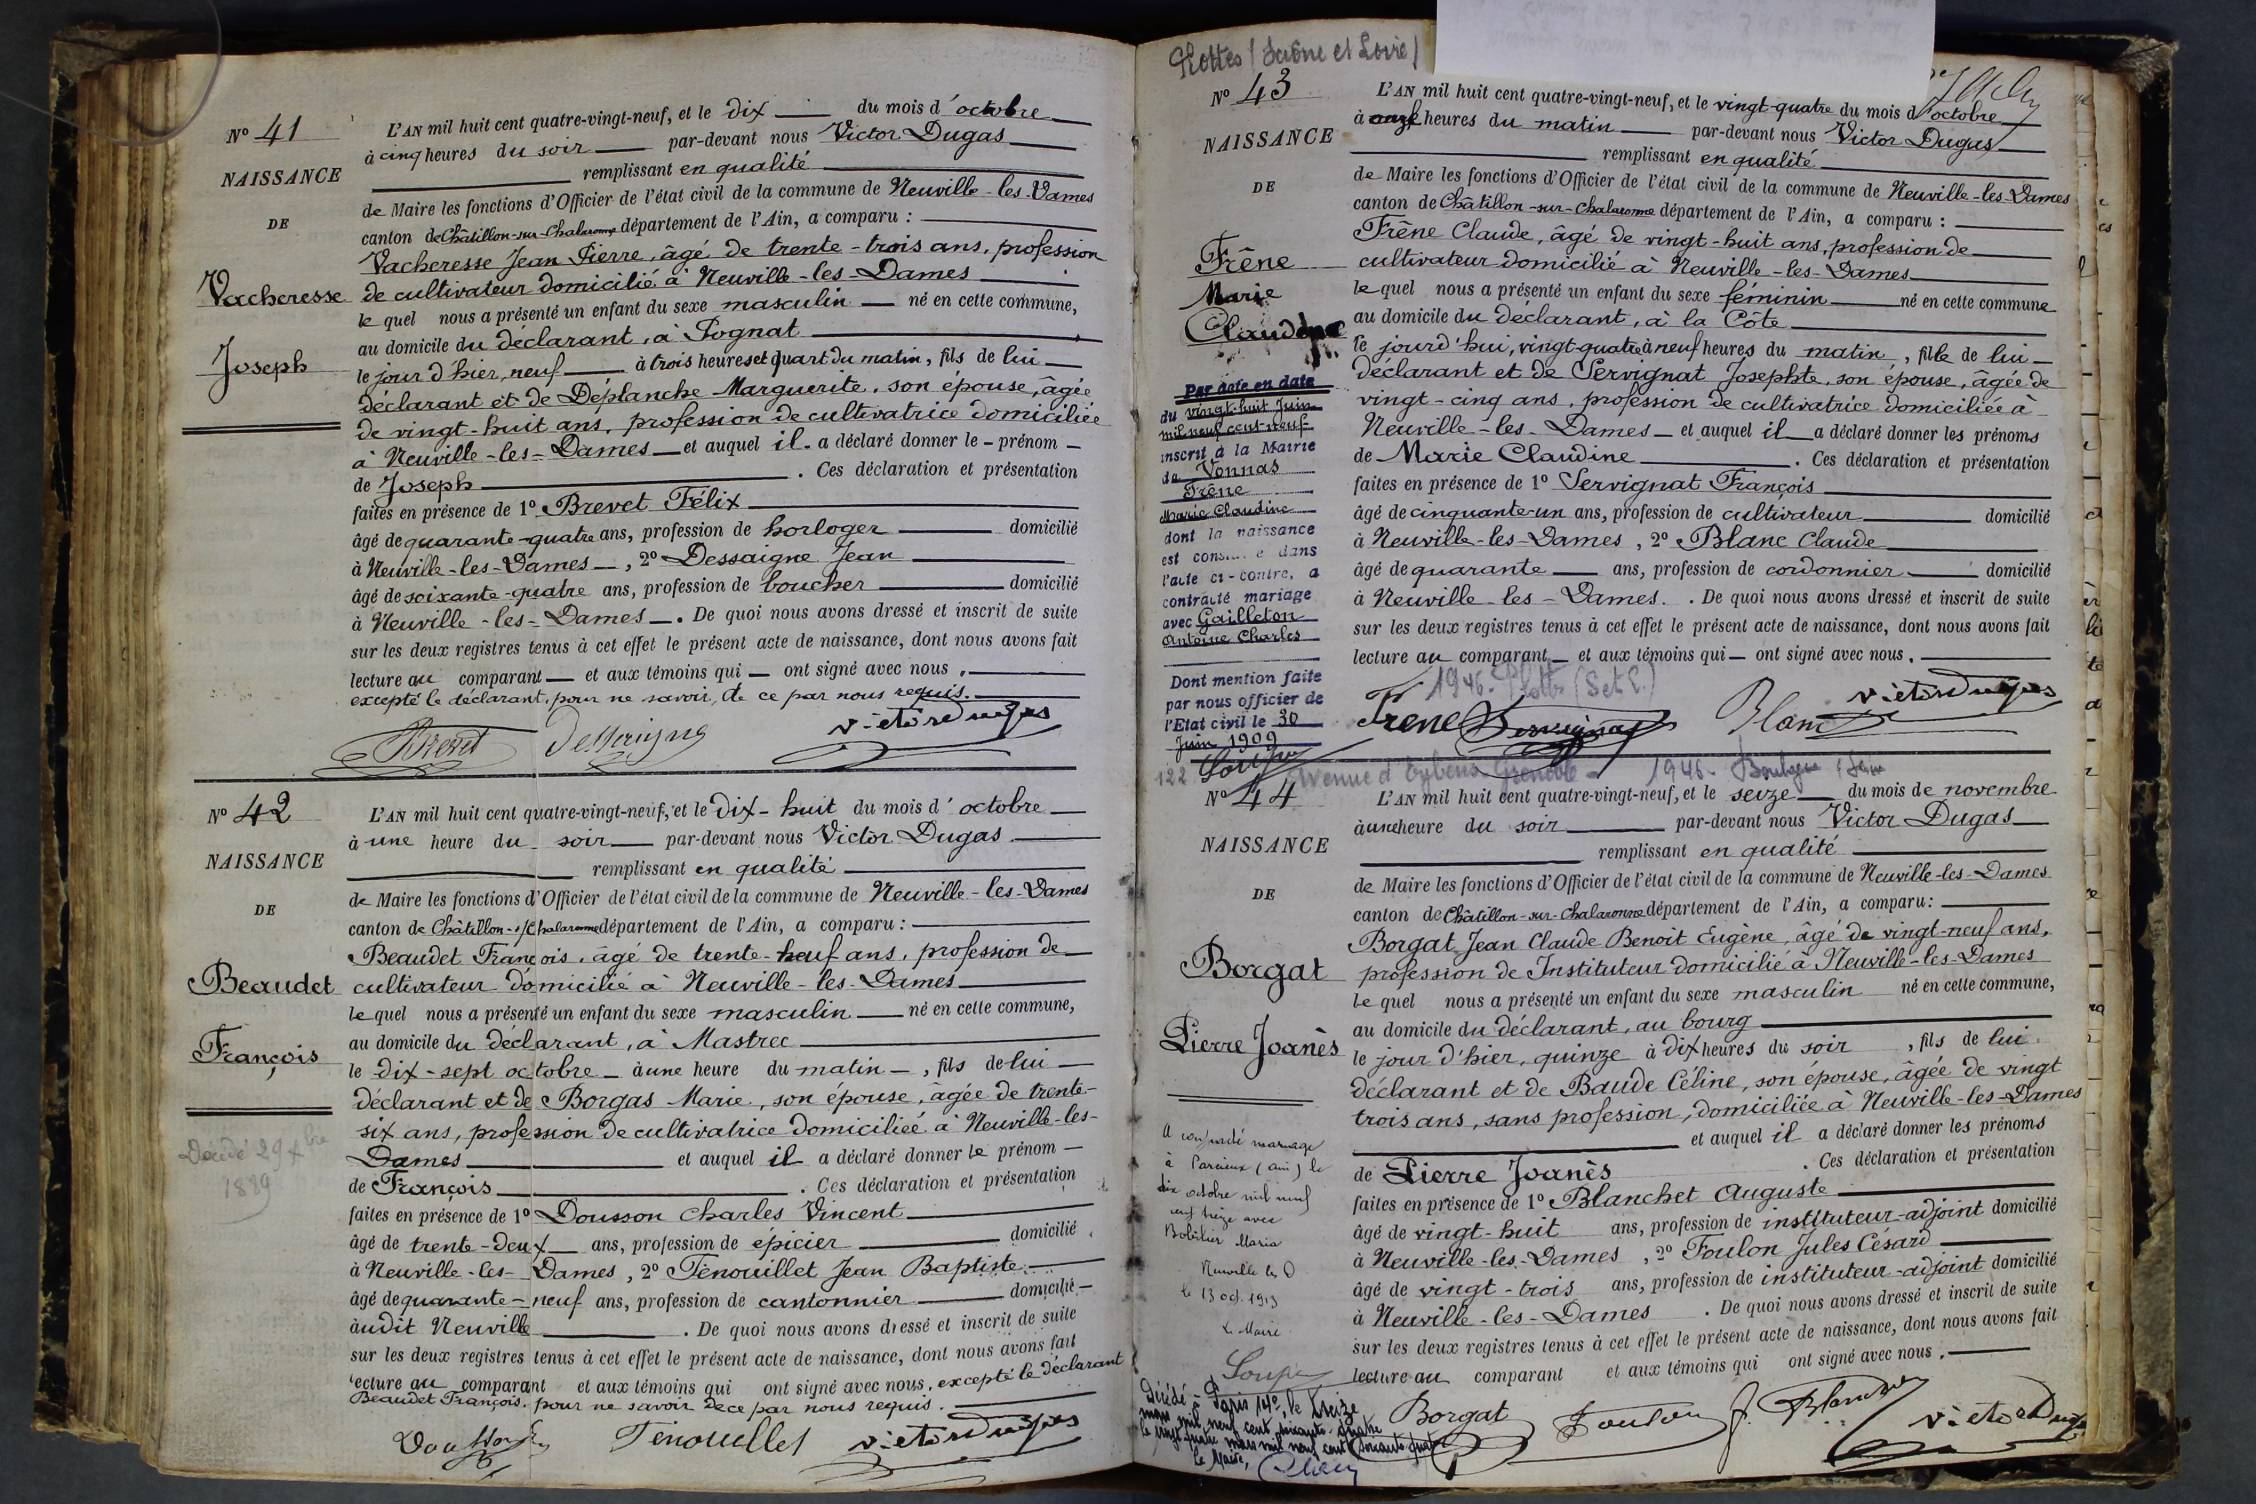 Nº 41
NAISSANCE
DE
Vacheresse
Joseph
L'AN mil huit cent quatre-vingt-neuf, et le dix du mois d'octobre
à cinq heures du soir par-devant nous Victor Dugas
remplissant en qualité
de Maire les fonctions d'Officier de l'état civil de la commune de Neuville-les-Dames
canton de Châtillon-sur-Chalaronne département de l'Ain, a comparu :
Vacheresse Jean Pierre, âgé de trente-trois ans, profession
de cultivateur domicilié à Neuville-les-Dames
lequel nous a présenté un enfant du sexe masculin né en cette commune,
au domicile du déclarant, à Pognat
le jour d'hier, neuf à trois heures et quart du matin, fils de lui
déclarant et de Déplanche Marguerite, son épouse, âgée
de vingt-huit ans, profession de cultivatrice domiciliée
à Neuville-les-Dames et auquel il a déclaré donner le prénom
de Joseph . Ces déclaration et présentation
faites en présence de 1º Brevet Félix
âgé de quarante-quatre ans, profession de horloger domicilié
à Neuville-les-Dames, 2º Dessaigne Jean
âgé de soixante-quatre ans, profession de boucher domicilié
à Neuville-les-Dames. De quoi nous avons dressé et inscrit de suite
sur les deux registres tenus à cet effet le présent acte de naissance, dont nous avons fait
lecture au comparant et aux témoins qui ont signé avec nous,
excepté le déclarant, pour ne savoir, de ce par nous requis.
Brevet Dessaigne Victor Dugas
Nº 42
NAISSANCE
DE
Beaudet
François
Décédé 29 Xbre
1889
L'AN mil huit cent quatre-vingt-neuf, et le dix-huit du mois d'octobre
à une heure du soir par-devant nous Victor Dugas
remplissant en qualité
de Maire les fonctions d'Officier de l'état civil de la commune de Neuville-les-Dames
canton de Châtillon-s/Chalaronne département de l'Ain, a comparu :
Beaudet François, âgé de trente-neuf ans, profession de
cultivateur domicilié à Neuville-les-Dames
lequel nous a présenté un enfant du sexe masculin né en cette commune,
au domicile du déclarant, à Mastrec
le dix-sept octobre à une heure du matin, fils de lui
déclarant et de Borgas Marie, son épouse, âgée de trente-
six ans, profession de cultivatrice domiciliée à Neuville-les-
Dames et auquel il a déclaré donner le prénom
de François . Ces déclaration et présentation
faites en présence de 1º Dousson Charles Vincent
âgé de trente-deux ans, profession de épicier domicilié
à Neuville-les-Dames, 2º Tenouillet Jean Baptiste
âgé de quarante-neuf ans, profession de cantonnier domicilié
audit Neuville . De quoi nous avons dressé et inscrit de suite
sur les deux registres tenus à cet effet le présent acte de naissance, dont nous avons fait
lecture au comparant et aux témoins qui ont signé avec nous, excepté le déclarant
Beaudet François, pour ne savoir de ce par nous requis.
Dousson Tenouillet Victor Dugas
Flottes (Saône et Loire)
Nº 43
NAISSANCE
DE
Frêne
Marie
Claudine
Par acte en date
du vingt-huit Juin
mil neuf cent neuf
inscrit à la Mairie
de Vonnas
Frêne
Marie Claudine
dont la naissance
est constatée dans
l'acte ci-contre, a
contracté mariage
avec Gailleton
Antoine Charles
Dont mention faite
par nous officier de
l'Etat civil le 30
Juin 1909
Soupe
L'AN mil huit cent quatre-vingt-neuf, et le vingt-quatre du mois d'octobre
à onze heures du matin par-devant nous Victor Dugas
remplissant en qualité
de Maire les fonctions d'Officier de l'état civil de la commune de Neuville-les-Dames
canton de Châtillon-sur-Chalaronne département de l'Ain, a comparu :
Frêne Claude, âgé de vingt-huit ans, profession de
cultivateur domicilié à Neuville-les-Dames
lequel nous a présenté un enfant du sexe féminin né en cette commune
au domicile du déclarant, à la Côte
le jourd'hui, vingt-quatre à neuf heures du matin, fille de lui
déclarant et de Servignat Josephte, son épouse, âgée de
vingt-cinq ans, profession de cultivatrice domiciliée à
Neuville-les-Dames et auquel il a déclaré donner les prénoms
de Marie Claudine . Ces déclaration et présentation
faites en présence de 1º Servignat François
âgé de cinquante-un ans, profession de cultivateur domicilié
à Neuville-les-Dames, 2º Blanc Claude
âgé de quarante ans, profession de cordonnier domicilié
à Neuville-les-Dames. De quoi nous avons dressé et inscrit de suite
sur les deux registres tenus à cet effet le présent acte de naissance, dont nous avons fait
lecture au comparant et aux témoins qui ont signé avec nous.
1946 - (S et L.)
Frene Servignat Blanc Victor Dugas
122 Avenue d'Eybens Grenoble - 1946 -
Nº 44
NAISSANCE
DE
Borgat
Pierre Joanès
A contracté mariage
à Parcieux (Ain) le
dix octobre mil neuf
cent treize avec
Bobilier Maria
Neuville les D
le 13 oct. 1913
Le Maire
Soupe
Décédé à Paris 14e, le treize
mars mil neuf cent soixante-quatre
le vingt quatre mars mil neuf cent soixante quatre
Le Maire,
L'AN mil huit cent quatre-vingt-neuf, et le seize du mois de novembre
à une heure du soir par-devant nous Victor Dugas
remplissant en qualité
de Maire les fonctions d'Officier de l'état civil de la commune de Neuville-les-Dames
canton de Châtillon-sur-Chalaronne département de l'Ain, a comparu :
Borgat Jean Claude Benoît Eugène, âgé de vingt-neuf ans,
profession de Instituteur domicilié à Neuville-les-Dames
lequel nous a présenté un enfant du sexe masculin né en cette commune,
au domicile du déclarant, au bourg
le jour d'hier, quinze à dix heures du soir, fils de lui
déclarant et de Baude Céline, son épouse, âgée de vingt
trois ans, sans profession, domiciliée à Neuville-les-Dames
et auquel il a déclaré donner les prénoms
de Pierre Joanès . Ces déclaration et présentation
faites en présence de 1º Blanchet Auguste
âgé de vingt-huit ans, profession de instituteur-adjoint domicilié
à Neuville-les-Dames, 2º Foulon Jules César
âgé de vingt-trois ans, profession de instituteur-adjoint domicilié
à Neuville-les-Dames . De quoi nous avons dressé et inscrit de suite
sur les deux registres tenus à cet effet le présent acte de naissance, dont nous avons fait
lecture au comparant et aux témoins qui ont signé avec nous.
Borgat Foulon J. Blanchet Victor Dugas